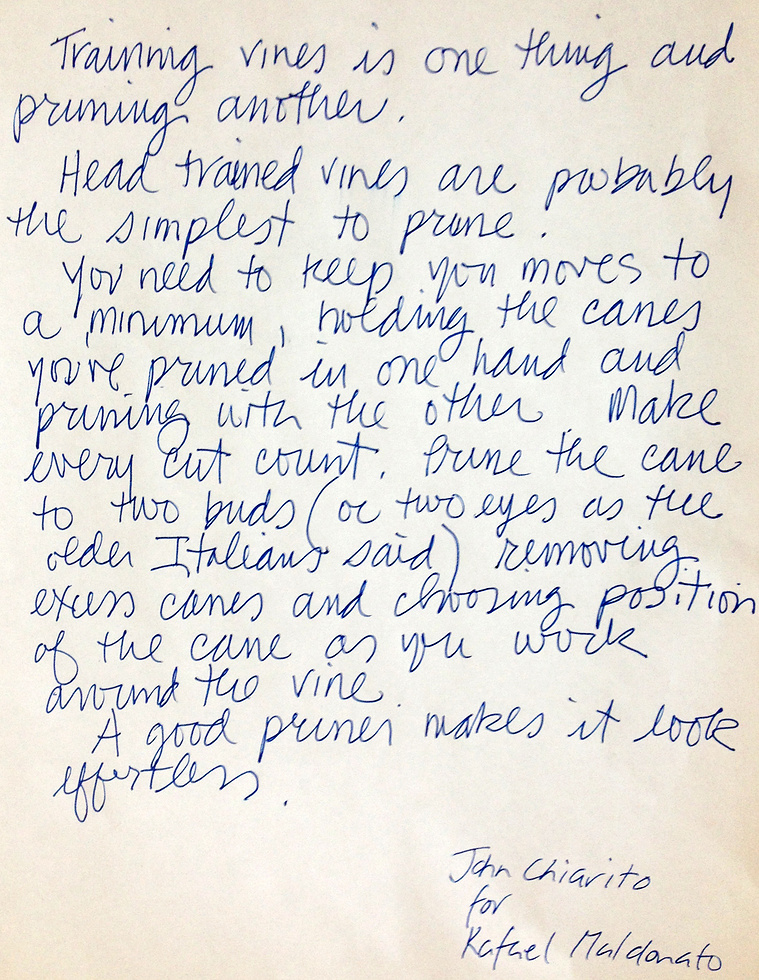 Training vines is one thing and
pruning another.
Head trained vines are probably
the simplest to prune.
You need to keep you moves to
a minimum, holding the canes
you've pruned in one hand and
pruning with the other. Make
every cut count. Prune the cane
to two buds (or two eyes as the
older Italians said) removing
excess canes and choosing position
of the cane as you work
around the vine
A good pruner makes it look
effortless.
John Chiarito
for
Rafael Maldonato